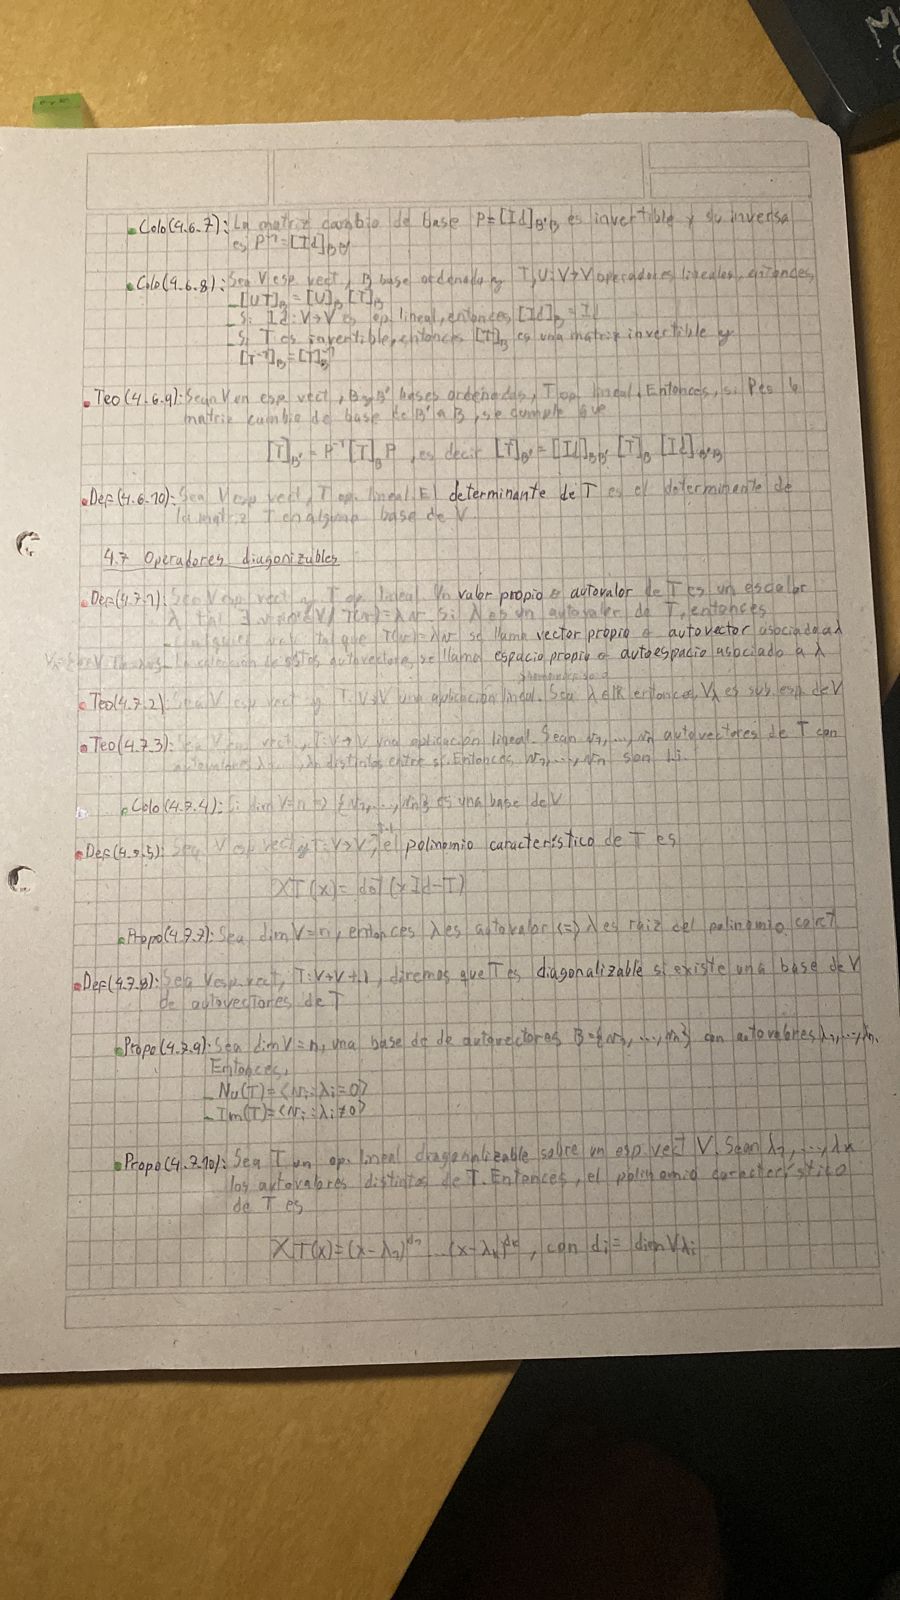 Colo(4.6.7): La matriz cambio de base P=[Id]B'B es invertible y su inversa
es P⁻¹=[Id]BB'
Colo(4.6.8): Sea V esp vect, B base ordenada y T,U:V→V operadores lineales, entonces,
_[UT]B=[U]B [T]B
_Si Id:V→V es op lineal, entonces [Id]B=Id
_Si T es invertible, entonces [T]B es una matriz invertible y
[T⁻¹]B=[T]B⁻¹
Teo(4.6.9): Sean V en esp vect, B y B' bases ordenadas, T op lineal. Entonces, si P es la
matriz cambio de base de B' a B, se cumple que
[T]B'=P⁻¹[T]B P, es decir [T]B'=[Id]BB' [T]B [Id]B'B
Def(4.6.10): Sea V esp vect, T op. lineal. El determinante de T es el determinante de
la matriz T en alguna base de V
4.7 Operadores diagonizables
Def(4.7.1): Sea V esp vect y T op lineal. Un valor propio o autovalor de T es un escalar
λ tal ∃ v∈V/ T(v)=λv. Si λ es un autovalor de T, entonces
_Cualquier v∈V tal que T(v)=λv se llama vector propio o autovector asociado a λ
_La colección de estos autovectores, se llama espacio propio o autoespacio asociado a λ
Teo(4.7.2): Sea V esp vect y T:V→V una aplicación lineal. Sea λ∈ℝ entonces, Vλ es sub esp de V
Teo(4.7.3): Sea V esp vect, T:V→V una aplicación lineal. Sean v1,...,vn autovectores de T con
autovalores λ1,...,λn distintos entre sí. Entonces v1,...,vn son li.
Colo(4.7.4): Si dim V=n => {v1,...,vn} es una base de V
Def(4.7.5): Sea V esp vect y T:V→V, el polinomio característico de T es
XT(x)=det(xId-T)
Propo(4.7.7): Sea dim V=n, entonces λ es autovalor <=> λ es raiz del polinomio carct
Def(4.7.8): Sea V esp vect, T:V→V t.l, diremos que T es diagonalizable si existe una base de V
de autovectores de T
Propo(4.7.9): Sea dim V=n, una base de de autovectores B={v1,...,vn} con autovalores λ1,...,λn.
Entonces,
_Nu(T)=<vi:λi=0>
_Im(T)=<vi:λi≠0>
Propo(4.7.10): Sea T un op. lineal diagonalizable sobre un esp vect V. Sean λ1,...,λk
los autovalores distintos de T. Entonces, el polinomio característico
de T es
XT(x)=(x-λ1)^d1...(x-λk)^dk, con di=dim Vλi